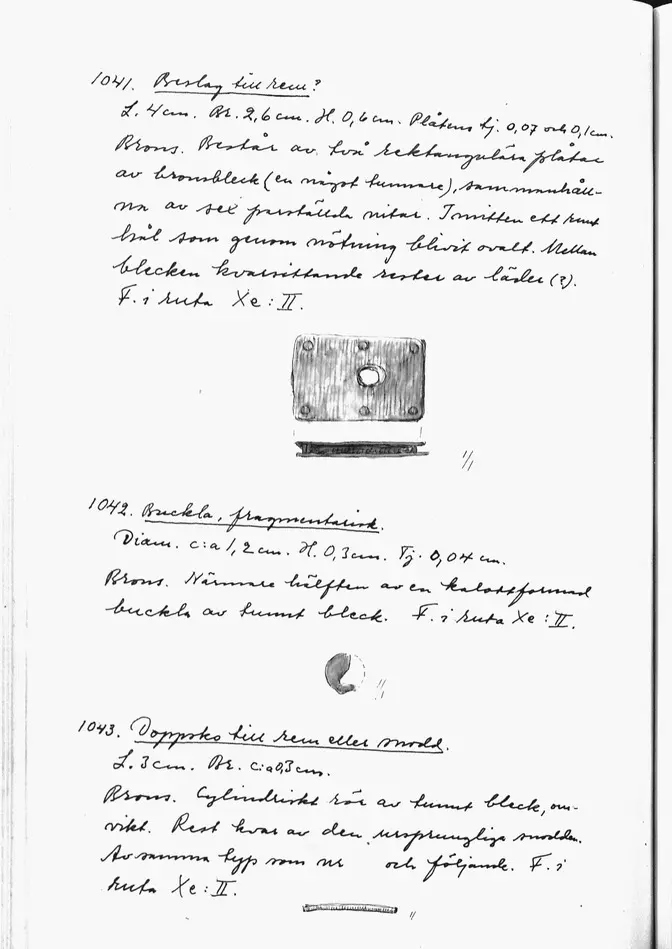 1041. Beslag till rem?
L. 4 cm. Br. 2,6 cm. H. 0,6 cm. Plåtens tj. 0,07 och 0,1 cm.
Brons. Består av två rektangulära plåtar
av bronsbleck (en något tunnare), sammanhåll-
na av sex parställda nitar. I mitten ett runt
hål som genom nötning blivit ovalt. Mellan
blecken kvarsittande rester av läder (?).
F. i ruta Xe : II.
1/1
1042. Buckla, fragmentarisk.
Diam. c:a 1,2 cm. H. 0,3 cm. Tj. 0,04 cm.
Brons. Närmare hälften av en kalottformad
buckla av tunnt bleck. F. i ruta Xe : II.
1/1
1043. Doppsko till rem eller snodd.
L. 3 cm. Br. c:a 0,3 cm.
Brons. Cylindriskt rör av tunnt bleck, om-
vikt. Rest kvar av den ursprungliga snodden.
Av samma typ som nr och följande. F. i
ruta Xe : II.
1/1